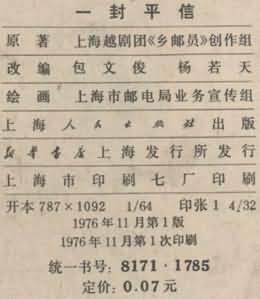 一封平信
原著 上海越剧团《乡邮员》创作组
改编 包文俊 杨若天
绘画 上海市邮电局业务宣传组
上海人民出版社出版
新华书店上海发行所发行
上海市印刷七厂印刷
开本 787×1092 1/64 印张 1 4/32
1976年11月第1版
1976年11月第1次印刷
统一书号: 8171·1785
定价: 0.07元